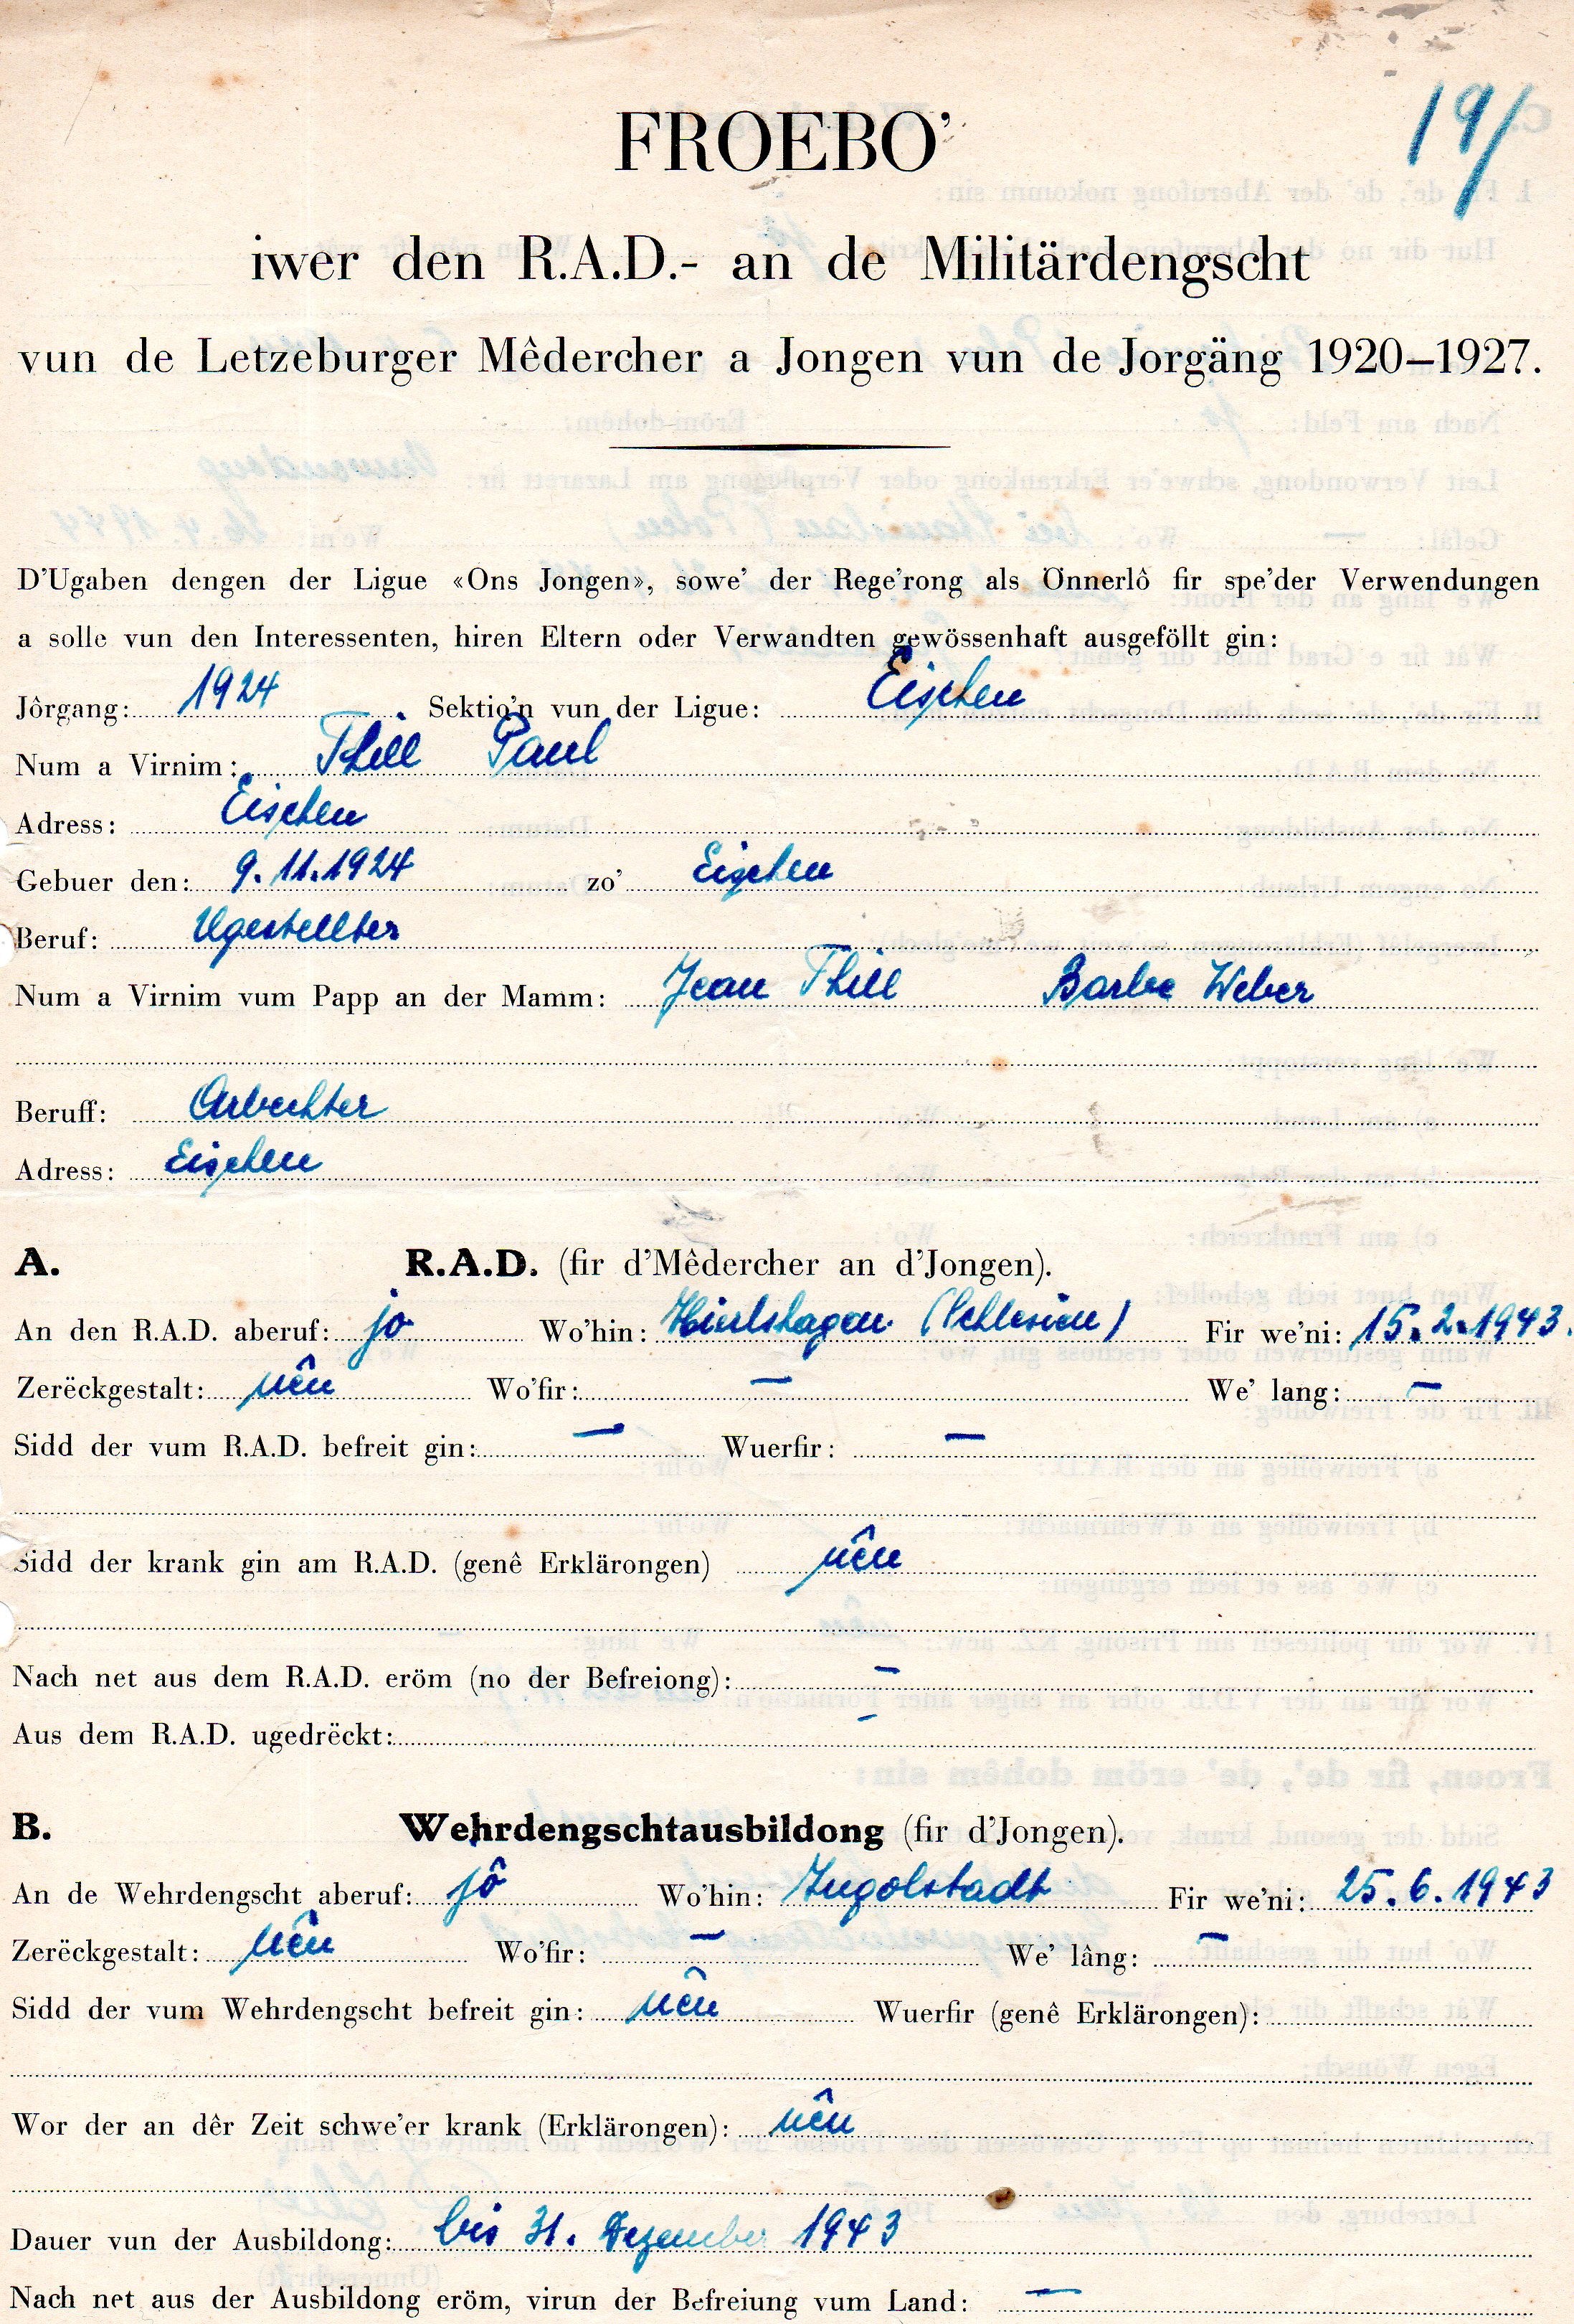 19/
FROEBO'
iwer den R.A.D.- an de Militärdengscht
vun de Letzeburger Mêdercher a Jongen vun de Jorgäng 1920–1927.
D'Ugaben dengen der Ligue «Ons Jongen», sowe' der Rege'rong als Önnerlô fir spe'der Verwendungen
a solle vun den Interessenten, hiren Eltern oder Verwandten gewössenhaft ausgeföllt gin:
Jôrgang: 1924 Sektio'n vun der Ligue: Eischen
Num a Virnim: Thill Paul
Adress: Eischen
Gebuer den: 9.11.1924 zo' Eischen
Beruf: Ugestellter
Num a Virnim vum Papp an der Mamm: Jean Thill Barbe Weber
Beruff: Arbechter
Adress: Eischen
A. R.A.D. (fir d'Mêdercher an d'Jongen).
An den R.A.D. aberuf: jo Wo'hin: Hierlshagen (Schlesien) Fir we'ni: 15.2.1943.
Zerëckgestalt: nên Wo'fir: — We' lang: —
Sidd der vum R.A.D. befreit gin: — Wuerfir: —
Sidd der krank gin am R.A.D. (genê Erklärongen) nên
Nach net aus dem R.A.D. eröm (no der Befreiong): —
Aus dem R.A.D. ugedrëckt: -
B. Wehrdengschtausbildong (fir d'Jongen).
An de Wehrdengscht aberuf: jô Wo'hin: Ingolstadt Fir we'ni: 25.6.1943
Zerëckgestalt: nên Wo'fir: — We' lâng: —
Sidd der vum Wehrdengscht befreit gin: nên Wuerfir (genê Erklärongen):
Wor der an dêr Zeit schwe'er krank (Erklärongen): nên
Dauer vun der Ausbildong: bis 31. Dezember 1943
Nach net aus der Ausbildong eröm, virun der Befreiung vum Land: —